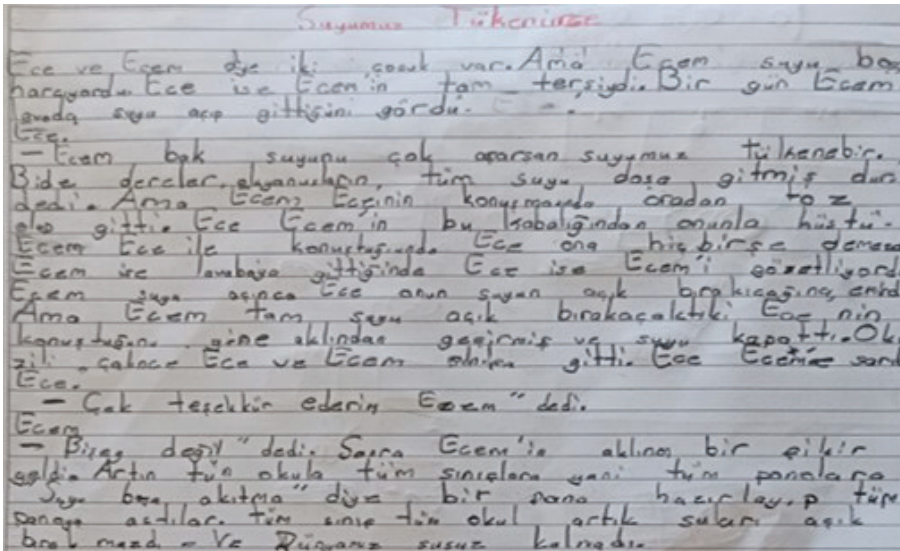 Suyumuz Tükenirse
Ece ve Ecem diye iki çocuk var. Ama Ecem suyu boş
harcıyordu. Ece ise Ecem'in tam tersiydi. Bir gün Ecem
suyu açıp gittiğini gördü.
Ece.
- Ecem bak suyunu çok açarsan suyumuz tülkenebir.
Bide dereler, tüm suyu boşa gitmiş
dedi. Ama Ecem Ece'nin oradan toz
olup gitti. Ece Ecem'in bu kabalığından onunla hüstü.
Ecem Ece ile konuştuğunda Ece ona hiçbirşe
Ecem ise lavabaya gittiğinde Ece ise Ecem'i gözetliyord
Ecem suyu açınca Ece onun suyun açık bırakıcağına emind
Ama Ecem tam suyu açık bırakacaktıki Ece nin
konuştuğunu gine aklından geçirmiş ve suyu kapattı. Ok
zili çalınce Ece ve Ecem gitti. Ece Ecem'e sarıl
Ece.
- Çok teşekkür ederim Ecem" dedi.
Ecem
- Birşey değil" dedi. Sonra Ecem'in aklına bir fikir
geldi. Artın tün okula tüm sınıflara yani tüm panolara
"Suyu boşa akıtma" diye bir pano hazırlayıp tüm
panoya astılar. Tüm sınıf tüm okul artık suları açık
bırakmazdı. Ve Dünyamız susuz kalmadı.